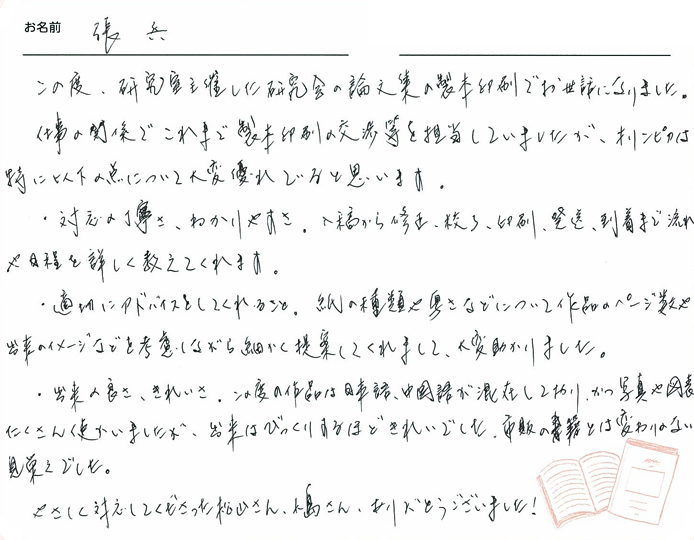 お名前 張 兵
この度、研究室主催した研究会の論文集の製本印刷でお世話になりました。
仕事の関係でこれまで製本印刷の交渉等を担当していましたが、オリンピアは
特に以下の点について大変優れていると思います。
・対応の丁寧さ、わかりやすさ。入稿から修正、校了、印刷、発送、到着まで流れ
や日程を詳しく教えてくれます。
・適切にアドバイスをしてくれること。紙の種類や厚さなどについて作品のページ数や
出来のイメージなどを考慮しながら細かく提案してくれまして、大変助かりました。
・出来の良さ、きれいさ。この度の作品は日本語、中国語が混在しており、かつ写真や図表
たくさん使かいましたが、出来はびっくりするほどきれいでした。市販の書籍とは変わりのない
見栄えでした。
やさしく対応してくださった松山さん、大島さん、ありがとうございました!